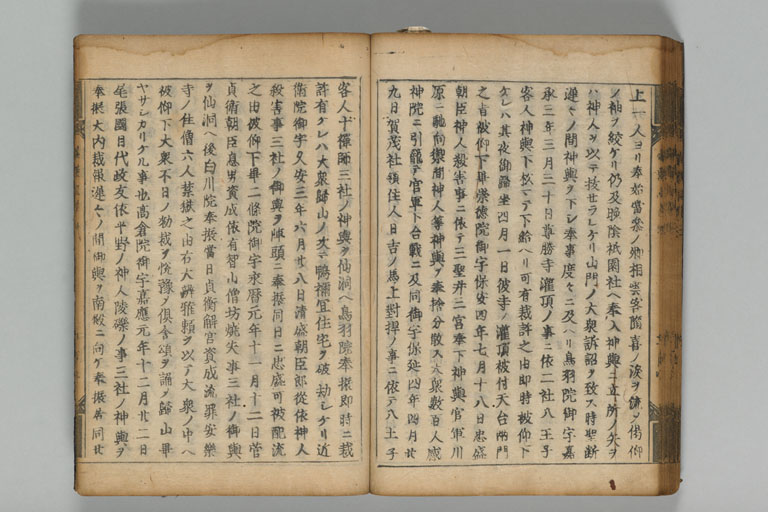 上一人ヨリ奉始當參ノ卿相雲客隨喜ノ淚ヲ流シ渇仰
ノ袖ヲ絞ケリ仍及晩陰祇園社ヘ奉入神輿ニ立所ノ矢ヲ
ハ神人ヲ以テ抜セラレケリ山門ノ大衆訴詔ヲ致ス時聖断
遅々ノ間神輿ヲ下シ奉事度々ニ及ヘリ鳥羽院御宇嘉
承三年三月三十日尊勝寺灌頂ノ事ニ依二社八王子
客人神輿下松ニ下給ヘリ可有裁許之由即時被仰下
ケレハ其夜御歸坐四月一日彼寺ノ灌頂被付天台兩門
之旨被仰下畢崇徳院御宇保安四年七月十八日忠盛
朝臣神人殺害事ニ依テ三聖井三宮奉下神輿官軍川
原ニ馳向禦間神人等神輿ヲ奉捨分散ス大衆数百人感
神院ニ引籠テ官軍ト合戰ニ及同御宇保延四年四月廿
九日賀茂社領住人日吉ノ馬上對捍ノ事ニ依テ八王子
客人十禪師三社ノ神輿ヲ仙洞ヘ鳥羽院奉振即時ニ裁
許有ケレハ大衆歸山ノ次テ鴨禰宜住宅ヲ破劫シケリ近
衛院御宇久安三年六月廿八日清盛朝臣郎從依神人
殺害事三社ノ御輿ヲ陣頭ニ奉振同日ニ忠盛可被配流
之由被仰下畢二條院御宇永暦元年十一月十二日菅
貞衛朝臣息男資成依有智山僧坊燒失事三社ノ御輿
ヲ仙洞ヘ後白川院奉振當日貞衡解官資成流罪安樂
寺ノ住僧六人禁獄之由右大辨雅頼ヲ以テ大衆ノ中ヘ
被仰下大衆不日ノ勅裁ヲ悦豫ノ倶舎頌ヲ誦ノ歸山畢
ヤサシカリケル事也高倉院御宇嘉應元年十二月廿二日
尾張國目代政友依平野ノ神人陵礫ノ事三社ノ神輿ヲ
奉振大内裁報遅々ノ間御輿ヲ南殿ニ向ケ奉振居同廿